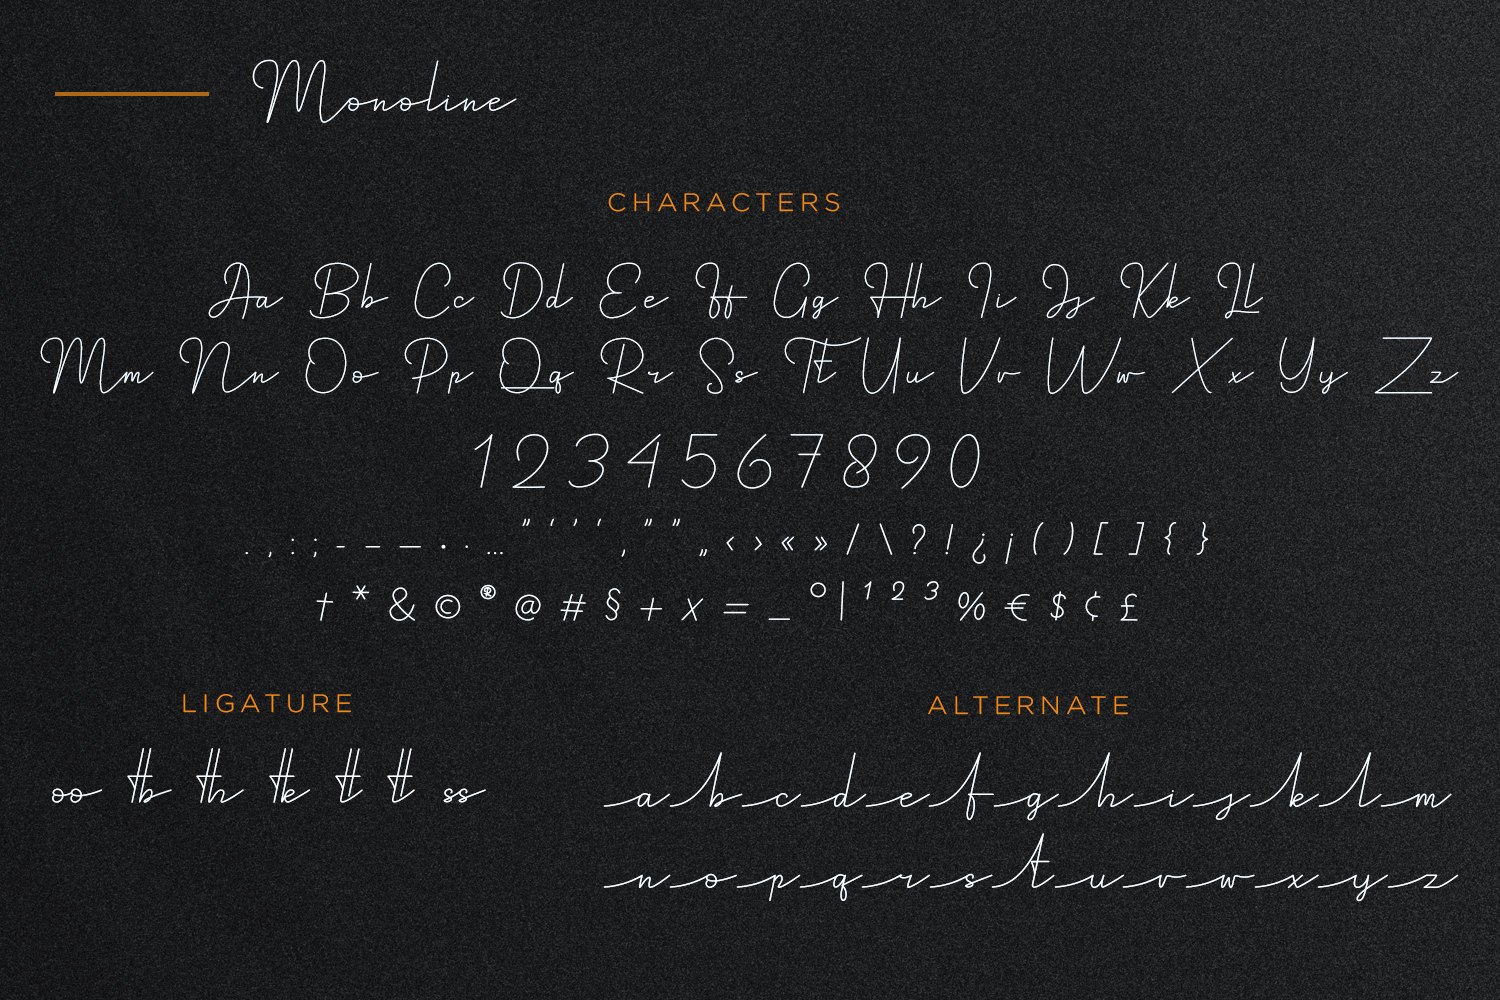 Monoline
CHARACTERS
Aa Bb Cc Dd Ee Ff Gg Hh Ii Jj Kk Ll
Mm Nn Oo Pp Qq Rr Ss Tt Uu Vv Ww Xx Yy Zz
1 2 3 4 5 6 7 8 9 0
. , : ; - – — • · · … " ' ' ' , " " „ ‹ › « » / \ ? ! ¿ ¡ ( ) [ ] { }
† * & © ® @ # § + x = _ ° | ¹ ² ³ % € $ ¢ £
LIGATURE
ALTERNATE
oo tb th tk tl tt ss
a b c d e f g h i j k l m
n o p q r s t u v w x y z